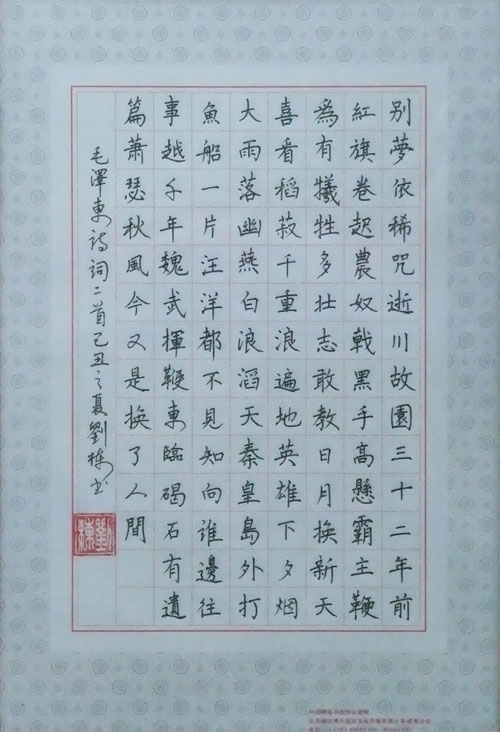 别夢依稀咒逝川故園三十二年前
紅旗卷起農奴戟黑手高懸霸主鞭
為有犧牲多壯志敢教日月換新天
喜看稻菽千重浪遍地英雄下夕烟
大雨落幽燕白浪滔天秦皇島外打
魚船一片汪洋都不見知向誰邊往
事越千年魏武揮鞭東臨碣石有遺
篇蕭瑟秋風今又是換了人間
毛澤東詩詞二首己丑之夏劉棟书